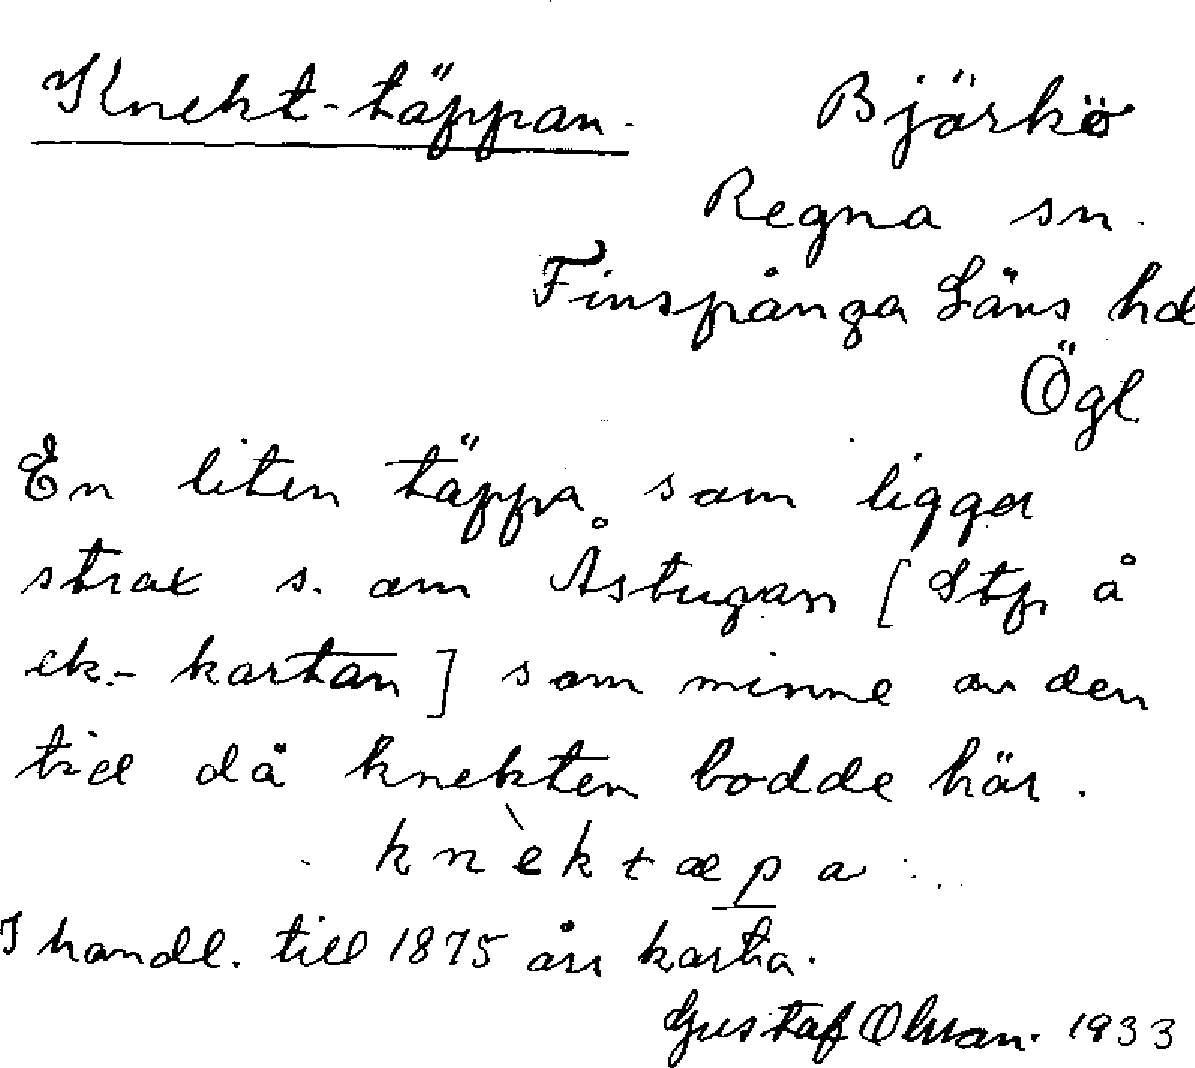 Knekt-täppan. Björkö
Regna sn.
Finspånga Läns hd
Ögl
En liten täppa som ligger
strax s. om Åstugan [Stp å
ek.- kartan] som minne av den
tid då knekten bodde här.
knèktæpa
I handl. till 1875 års karta.
Gustaf Olsson. 1933